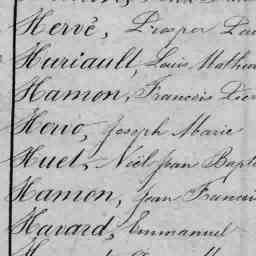 Hervé, Prosper
Huriault, Louis Mathur
Hamon, François Pier
Horvo, Joseph Marie
Huet, Noël Jean Bapt
Hamon, Jean Franço
Havard, Emmanuel